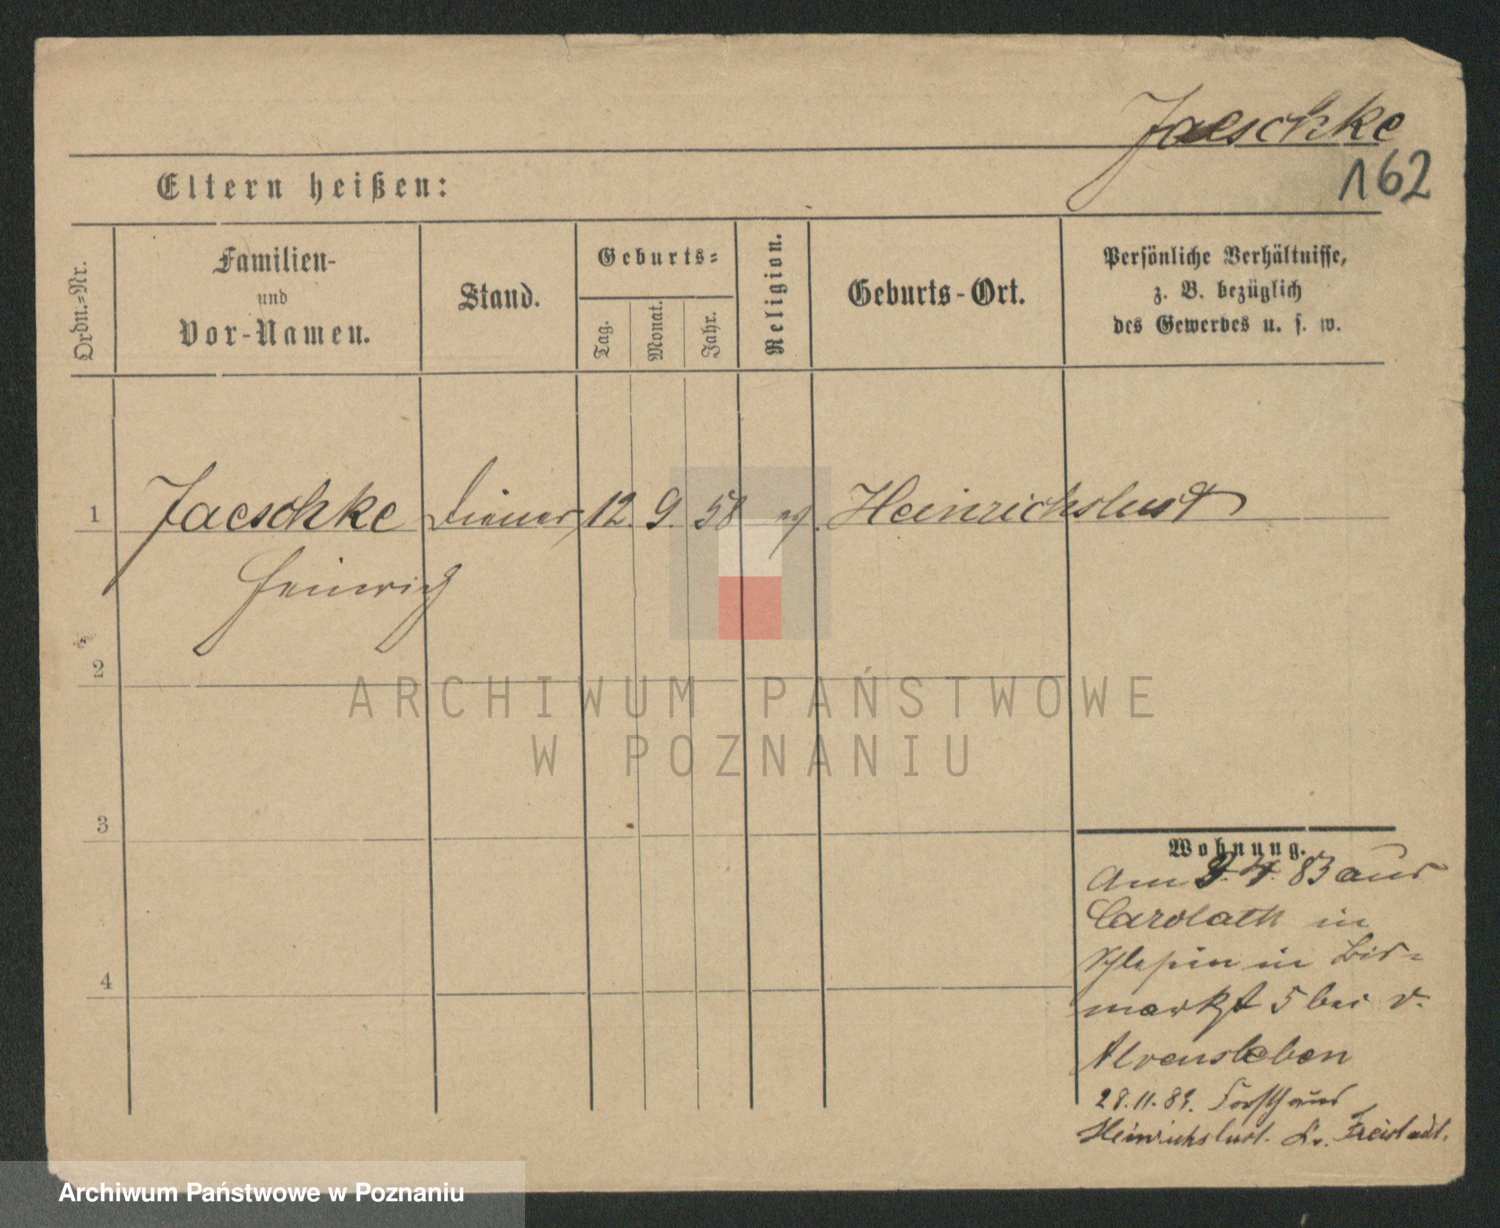 Jaeschke
162
Eltern heißen:
Ordn.=Nr.
Familien-
und
Vor-Namen.
Stand.
Geburts=
Tag.
Monat.
Jahr.
Religion.
Geburts-Ort.
Persönliche Verhältnisse,
z. B. bezüglich
des Gewerbes u. s. w.
1 Jaeschke Diener 12. 9. 58 ev. Heinrichslust
Heinrich
2
ARCHIWUM PAŃSTWOWE
W POZNANIU
3
Wohnung.
Am 4. 83 aus
Carolath in
in
5 bei v.
Alvensleben
28.11. Forsthaus
Heinrichslust. Freistadt.
4
Archiwum Państwowe w Poznaniu